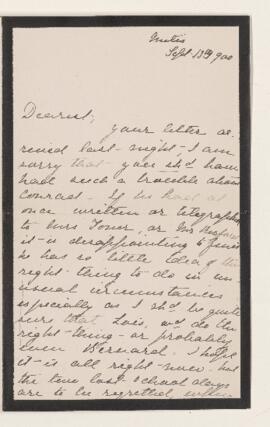 Metis
Sept 13th 900
Dearest,
your letter ar
rived last night - I am
sorry that you shd have
had such a trouble about
Conrad - If he had at
once written or telegraphed
to Mrs or Mr
it is disappointing to find
he has so little idea of the
right thing to do in un
usual circumstances
especially as I shd be quite
sure that Lois wd do the
right thing - or probably
even Bernard. I hope
it is all right now but
the two lost school days
are to be regretted when